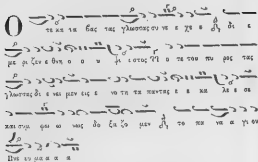 Ο τε κα τα βας τας γλωσσας συ νε χε ε δι ε
με ρι ζεν ε θνη ο ο υ ψι ι στος ο τε του πυ ρος τας
γλωσσας δι ε νει μεν εις ε νο τη τα παντας ε ε κα λε σε
και συμ φω ω νως δο ξα ζο μεν το πα να α γι ον
Πνε ευ μα α α α